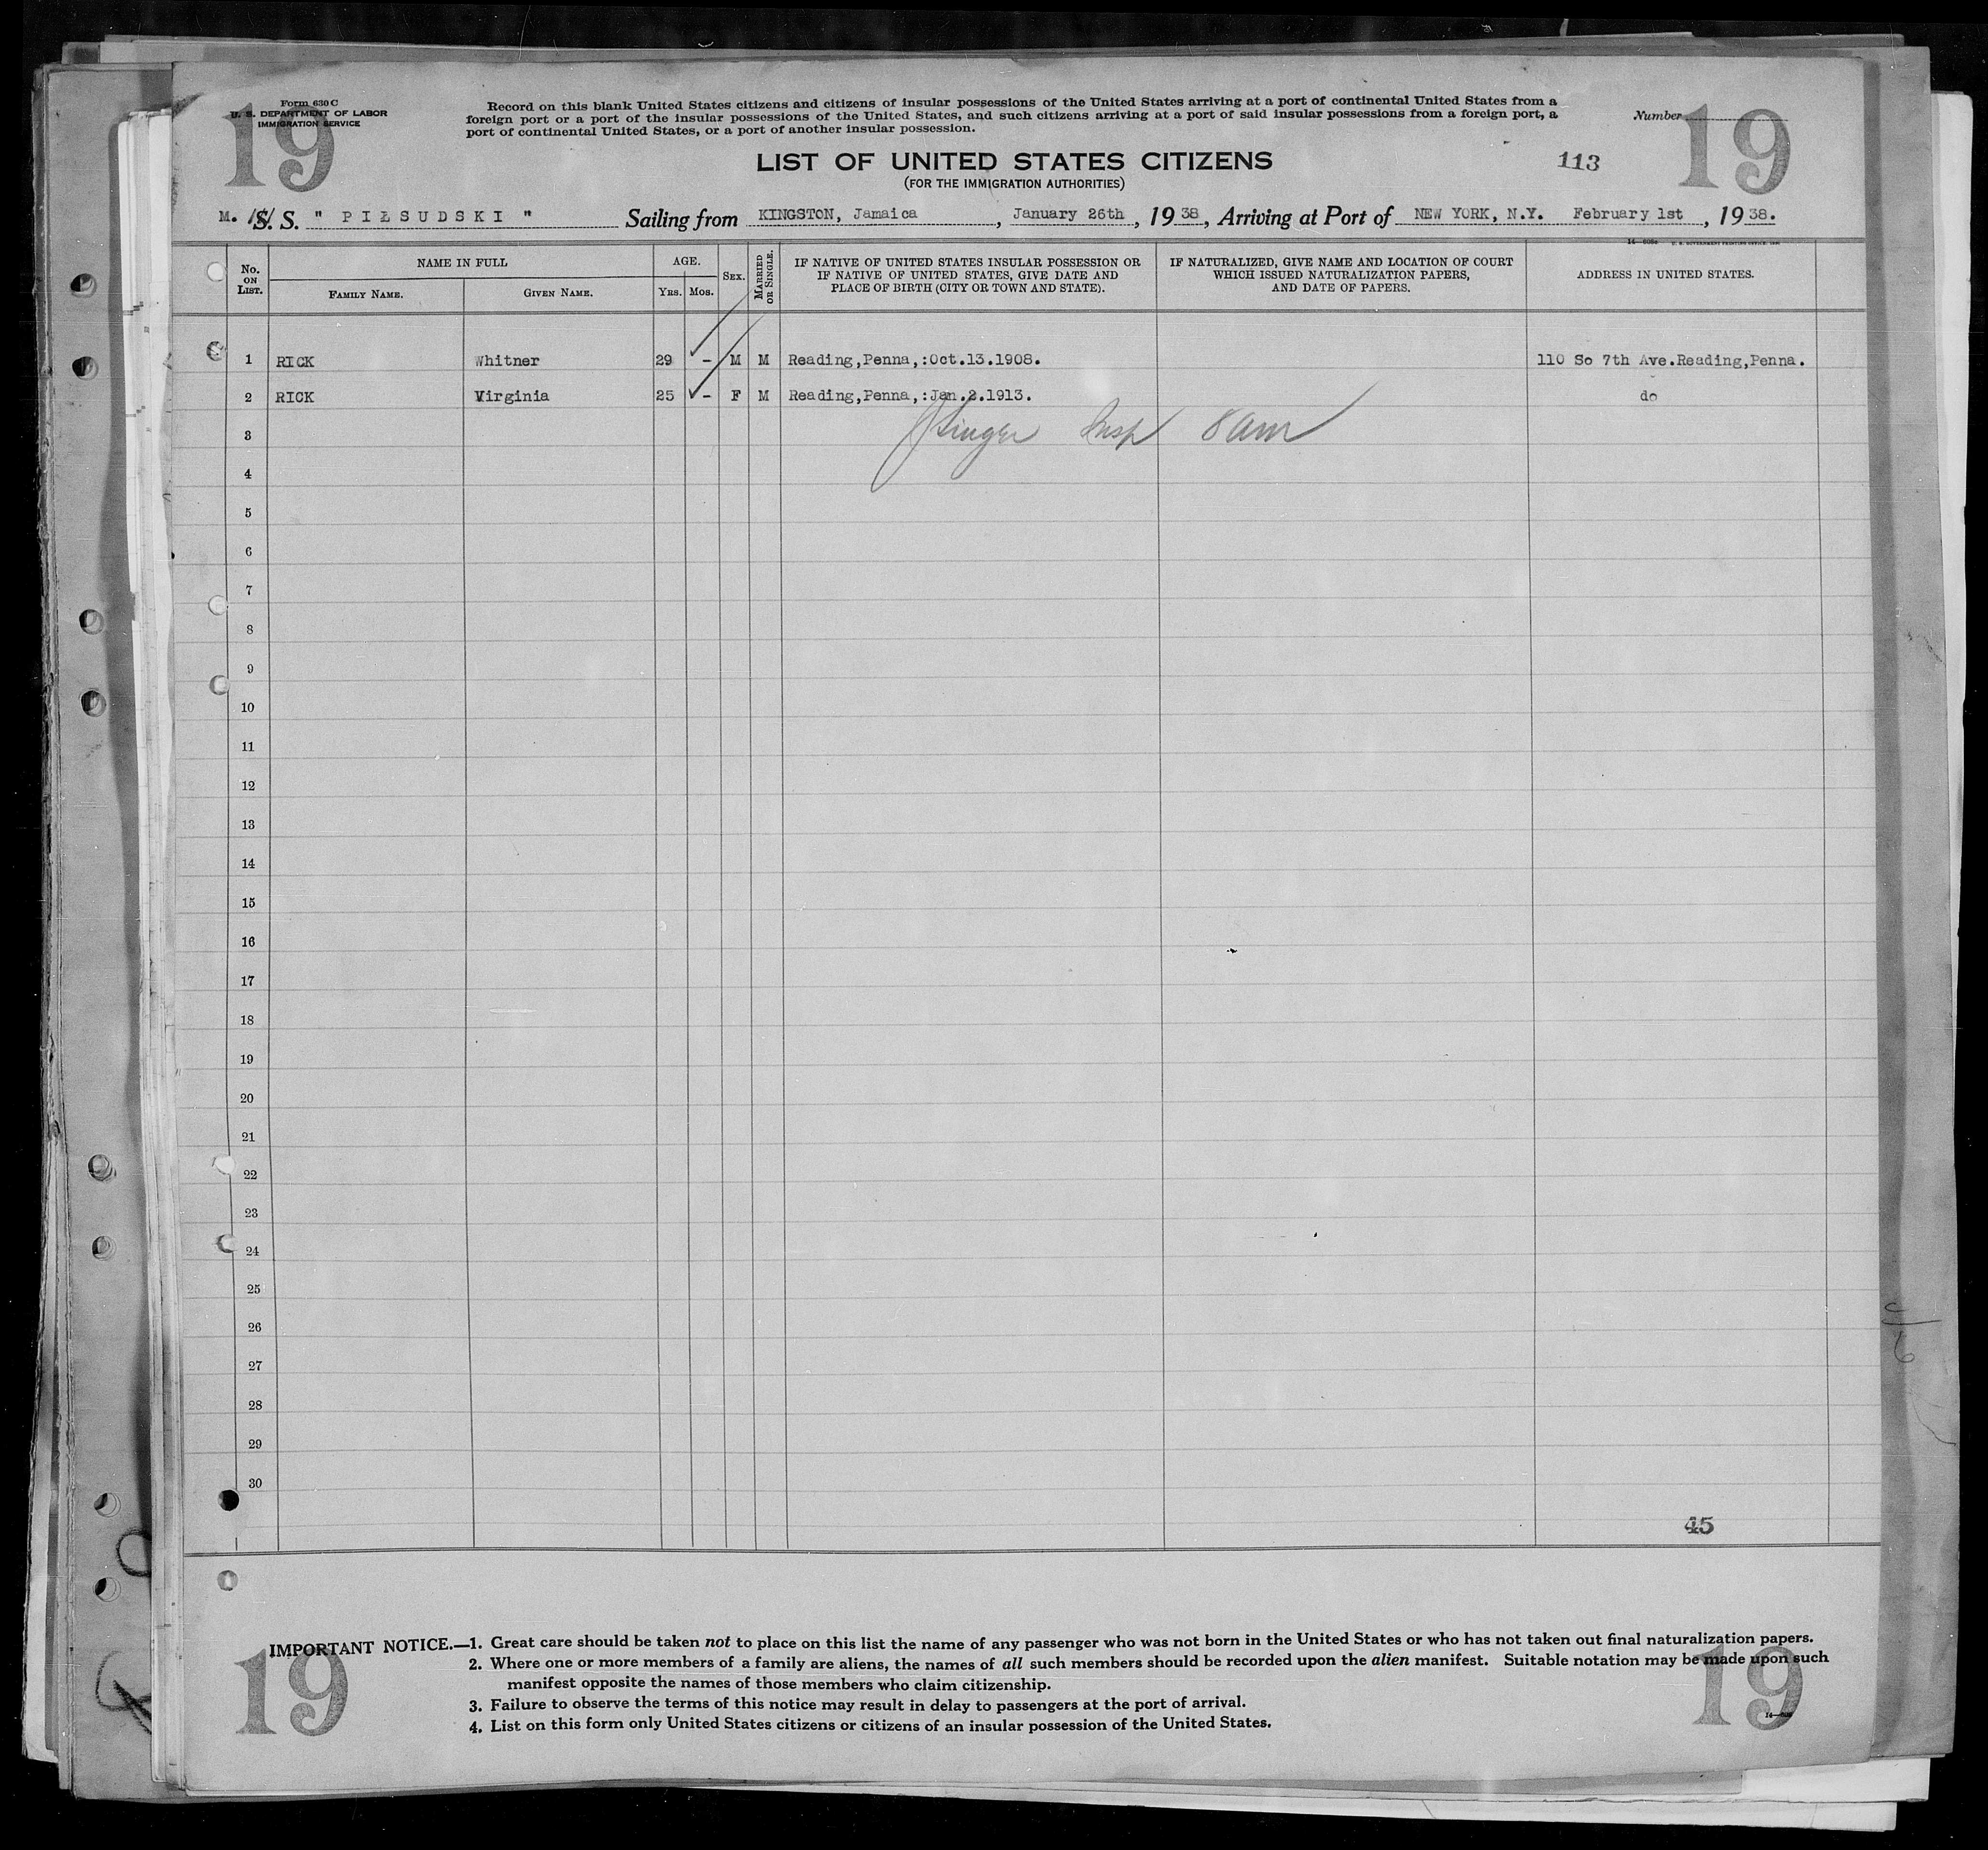 19
Form 630 C
U. S. DEPARTMENT OF LABOR
IMMIGRATION SERVICE
Record on this blank United States citizens and citizens of insular possessions of the United States arriving at a port of continental United States from a
foreign port or a port of the insular possessions of the United States, and such citizens arriving at a port of said insular possessions from a foreign port, a
port of continental United States, or a port of another insular possession.
Number
19
LIST OF UNITED STATES CITIZENS
113
(FOR THE IMMIGRATION AUTHORITIES)
M. S. S. " PIŁSUDSKI " Sailing from KINGSTON, Jamaica, January 26th, 1938, Arriving at Port of NEW YORK, N.Y. February 1st, 1938.
No. ON LIST. NAME IN FULL FAMILY NAME. GIVEN NAME. AGE. YRS. MOS. SEX. MARRIED OR SINGLE. IF NATIVE OF UNITED STATES INSULAR POSSESSION OR IF NATIVE OF UNITED STATES, GIVE DATE AND PLACE OF BIRTH (CITY OR TOWN AND STATE). IF NATURALIZED, GIVE NAME AND LOCATION OF COURT WHICH ISSUED NATURALIZATION PAPERS, AND DATE OF PAPERS. ADDRESS IN UNITED STATES.
1 RICK Whitner 29 – M M Reading,Penna,:Oct.13.1908. 110 So 7th Ave.Reading,Penna.
2 RICK Virginia 25 – F M Reading,Penna,:Jan.2.1913. do
3 Insp 8 am
4
5
6
7
8
9
10
11
12
13
14
15
16
17
18
19
20
21
22
23
24
25
26
27
28
29
30
45
IMPORTANT NOTICE.—1. Great care should be taken not to place on this list the name of any passenger who was not born in the United States or who has not taken out final naturalization papers.
2. Where one or more members of a family are aliens, the names of all such members should be recorded upon the alien manifest. Suitable notation may be made upon such
manifest opposite the names of those members who claim citizenship.
3. Failure to observe the terms of this notice may result in delay to passengers at the port of arrival.
4. List on this form only United States citizens or citizens of an insular possession of the United States.
19
19